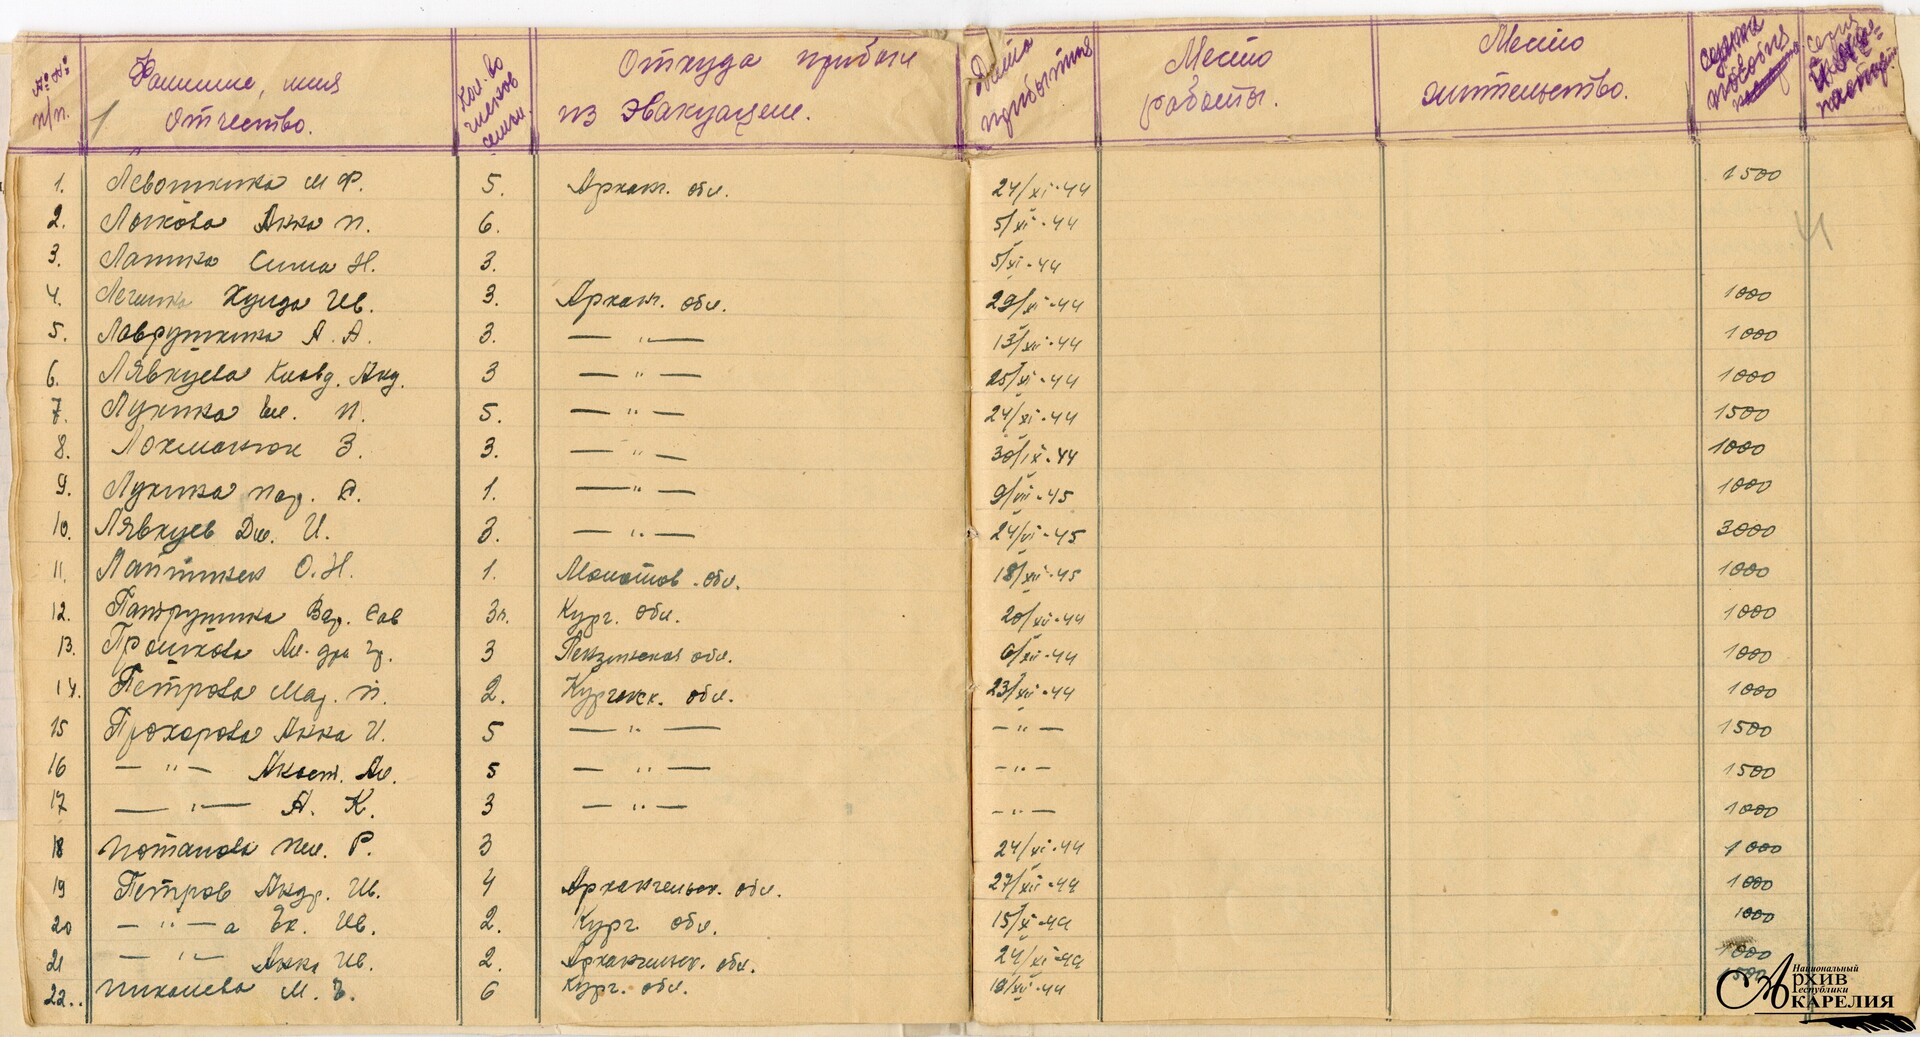 № № п/п. Фамилие, имя Отчество. Кол-во членов семьи. Откуда прибыли из Эвакуации. Дата прибытия Место работы. Место жительство. сумма пособия серия паспорт.
1
1. Левошкина М Ф. 5. Архан. обл. 24/XI-44 1500
2. Лычкова Анна П. 6. 5/XI-44
41
3. Лапина Сима Н. 3. 5/XI-44
4. Хилда Ив. 3. Архан. обл. 29/XI-44 1000
5. Лаврушкина А. А. 3. — " — 13/XII-44 1000
6. Лявкуева Клавд. Анд. 3 — " — 25/XI-44 1000
7. Лукина Ел. П. 5. — " — 24/XI-44 1500
8. Лохманюк З. 3. — " — 30/IX-44 1000
9. Лукина 1. — " — 9/VII-45 1000
10. Лявкуев Дм. И. 3. — " — 24/VI-45 3000
11. О. Н. 1. Молотов. обл. 18/XII-45 1000
12. Патрушина Вар. Сав 3 Кург. обл. 20/XII-44 1000
13. Ал-дра Гр. 3 Пензинская обл. 6/XII-44 1000
14. Петрова П. 2. Кургонск. обл. 23/XII-44 1000
15 Прохорова Анна И. 5 — " — — " — 1500
16 — " — Анаст. Ал. 5 — " — — " — 1500
17 — " — А. К. 3 — " — — " — 1000
18 Потапова Пел. Р. 3 24/XI-44 1000
19 Петров Андр. Ив. 4 Архангельск. обл. 27/XII-44 1000
20 — " — а Ек. Ив. 2. Кург. обл. 15/X-44 1000
21 — " — Анна Ив. 2. Архангельск. обл. 24/XI-44 1000
22.. М. Е. 6 Кург. обл. /XI-44 1500
Национальный
АРХИВ
Республики
КАРЕЛИЯ